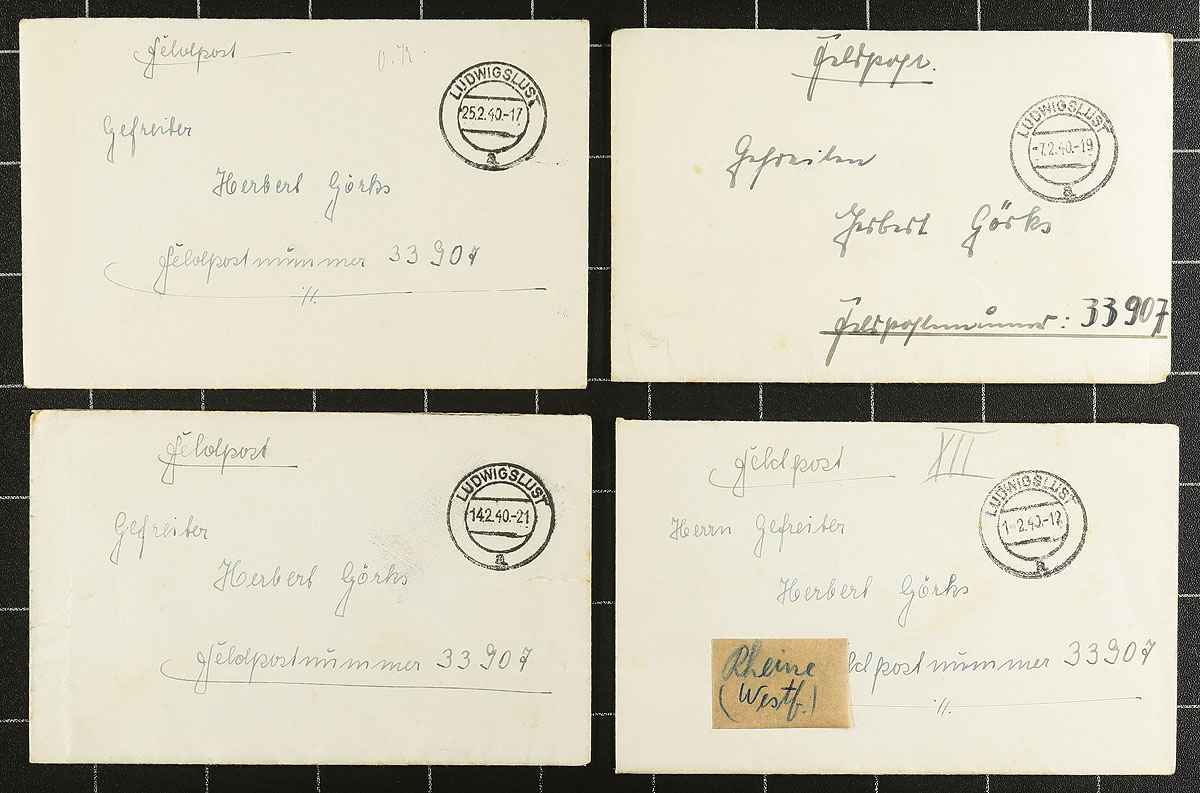 Feldpost
v. K.
LUDWIGSLUST
25.2.40.-17
a
Gefreiter
Herbert Görks
Feldpostnummer 33907
Feldpost.
LUDWIGSLUST
-7.2.40.-19
a
Gefreiten
Herbert Görks
Feldpostnummer: 33907
Feldpost
LUDWIGSLUST
14.2.40.-21
a
Gefreiter
Herbert Görks
Feldpostnummer 33907
Feldpost
XII
LUDWIGSLUST
1-2.40.-12
a
Herrn Gefreiter
Herbert Görks
ldpostnummer 33907
Rheine
(Westf.)